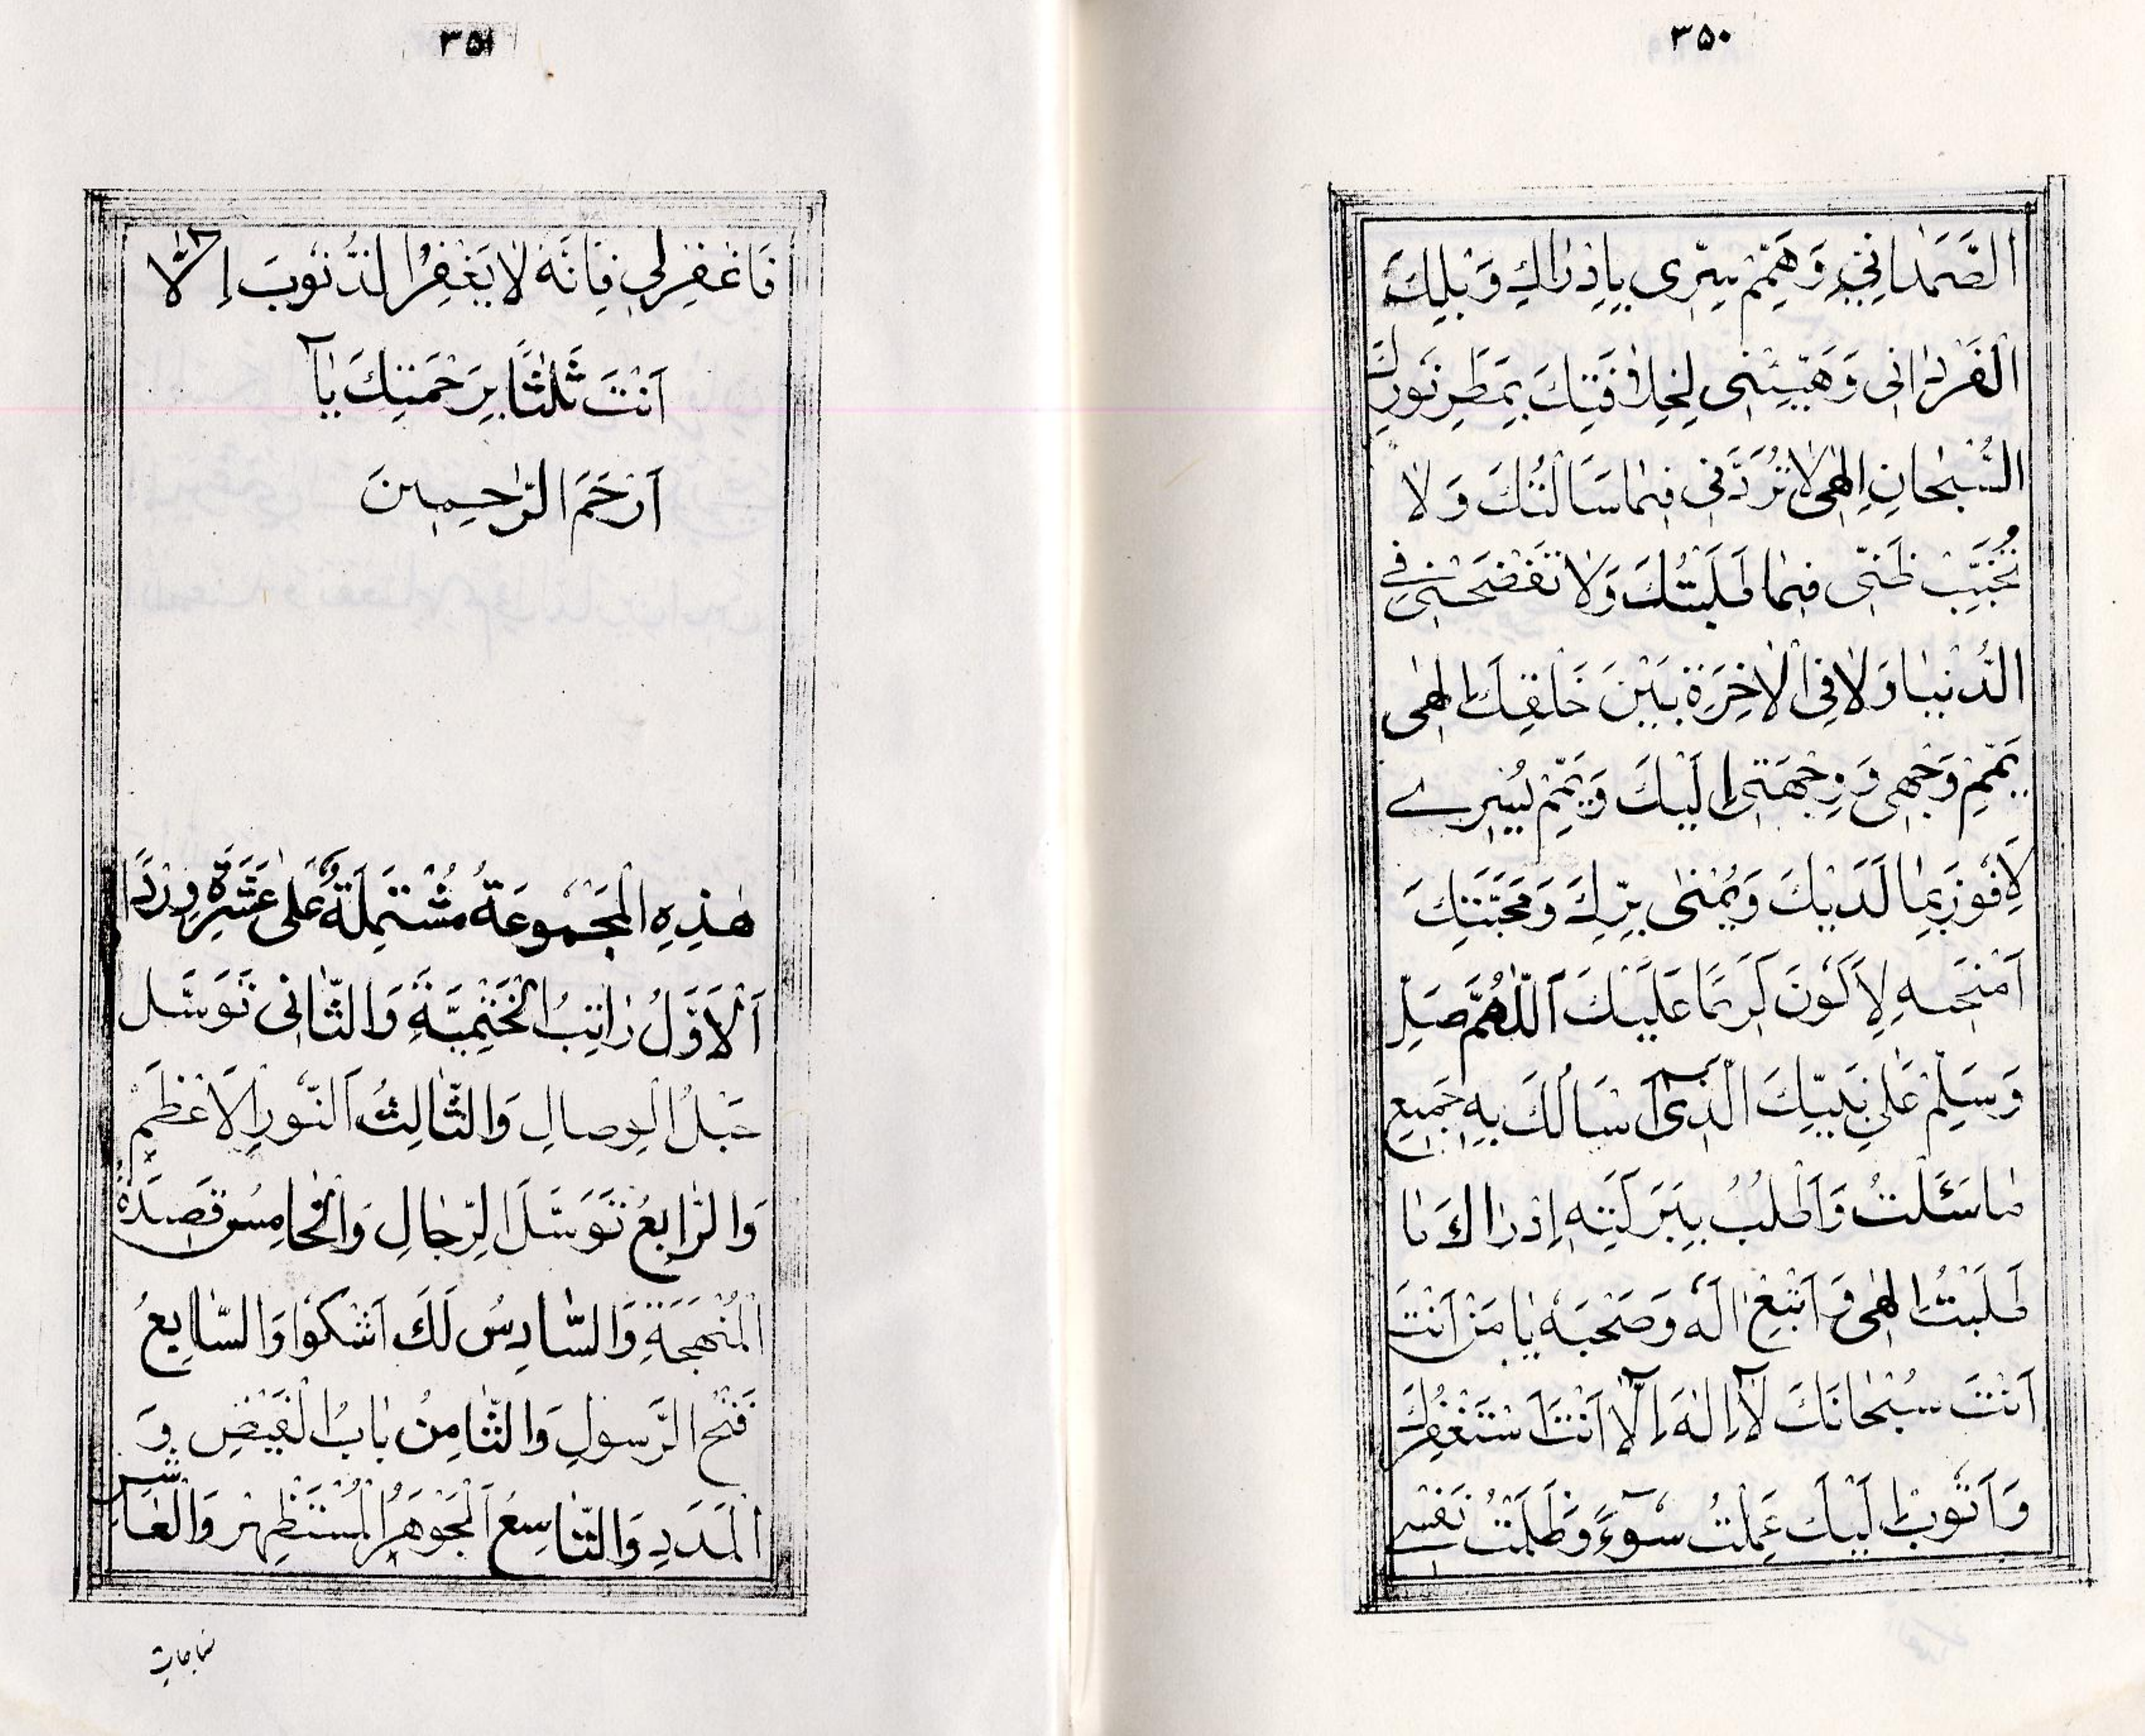 ٣٥٠
الصَّمَدَانِيِّ وَهَمِّمْ سِرِّى بِإِدْرَاكِ وَبْلِكَ
الْفَرْدَانِى وَهَيِّئْنِى لِخِلَافَتِكَ بِمَطَرِ نُورِكَ
السُّبْحَانِ اِلٰهِى لَا تَرُدَّنِى فِيمَا سَالْتُكَ وَلَا
تُخَيِّبْ ظَنِّى فِيمَا طَلَبْتُكَ وَلَا تَفْضَحْنِى فِى
الدُّنْيَا وَلَا فِى الْاٰخِرَةِ بَيْنَ خَلْقِكَ اِلٰهِى
يَمِّمْ وَجْهِى وَوِجْهَتِى اِلَيْكَ وَتَمِّمْ يُسْرِى
لِاَفُوزَ بِمَا لَدَيْكَ وَيُمْنٰى بِرِّكَ وَمَحَبَّتِكَ
اَمْنِحْهِ لِاَكُونَ كَرِيمًا عَلَيْكَ اَللّٰهُمَّ صَلِّ
وَسَلِّمْ عَلٰى نَبِيِّكَ الَّذِى اَسْاَلُكَ بِهِ جَمِيعَ
مَا سَئَلْتُ وَاَطْلُبُ بِبَرَكَتِهِ اِدْرَاكَ مَا
طَلَبْتُ اِلٰهِى وَاَتْبِعْ اٰلَهُ وَصَحْبَهُ يَا مَنْ اَنْتَ
اَنْتَ سُبْحَانَكَ لَا اِلٰهَ اِلَّا اَنْتَ اَسْتَغْفِرُكَ
وَاَتُوبُ اِلَيْكَ عَمِلْتُ سُوءً وَظَلَمْتُ نَفْسِى
٣٥١
فَاغْفِرْلِى فَاِنَّهُ لَا يَغْفِرُ الذُّنُوبَ اِلَّا
اَنْتَ ثَلٰثًا بِرَحْمَتِكَ يَا
اَرْحَمَ الرَّاحِمِينَ
هٰذِهِ الْمَجْمُوعَةُ مُشْتَمِلَةٌ عَلٰى عَشَرَةِ وِرْدًا
اَلْاَوَّلُ رَاتِبُ الْخَتْمِيَّةِ وَالثَّانِى تَوَسَّل
حَبْلُ الْوِصَالِ وَالثَّالِثُ اَلنُّورِ الْاَعْظَمْ
وَالرَّابِعُ تَوَسَّلَ الرِّجَالِ وَالْخَامِسُ قَصِيدَةُ
الْمُنْهَجَةِ وَالسَّادِسُ لَكَ اَشْكُوا وَالسَّابِعُ
فَتْحِ الرَّسُولِ وَالثَّامِنُ بَابُ الْفَيْضِ وَ
الْمَدَدِ وَالتَّاسِعُ اَلْجَوْهَرُ الْمُسْتَظْهَرْ وَالْعَاشِر